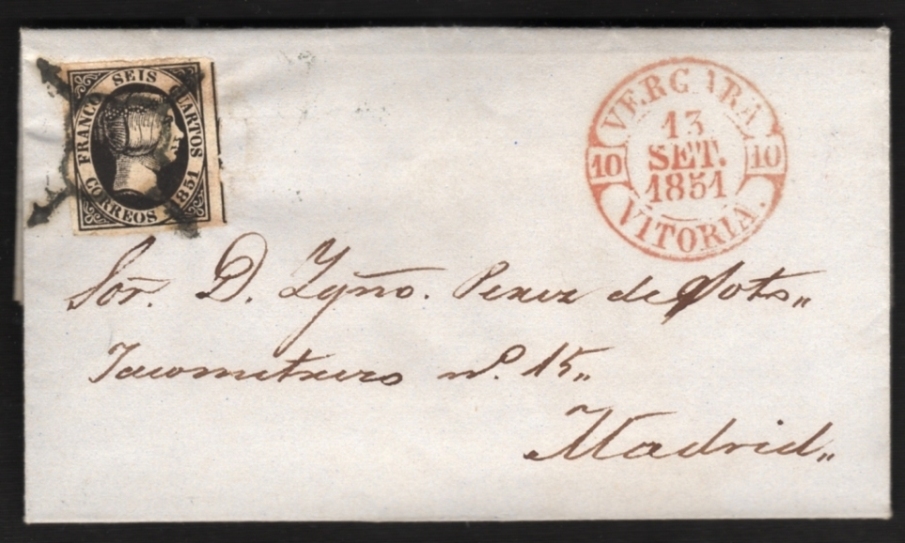 FRANCO SEIS CUARTOS
CORREOS 1851
VERGARA
13
SET.
1851
10
10
VITORIA.
Sor. D. Ygño. Perez de Soto„
Jacometrezo nº. 15„
Madrid„